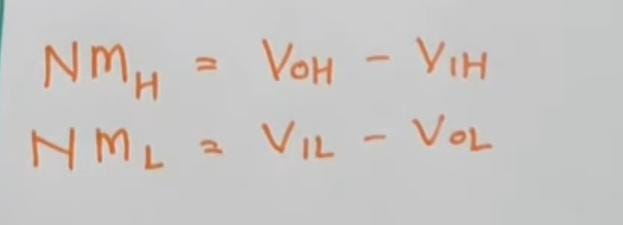 NMH = VOH - VIH
NML = VIL - VOL